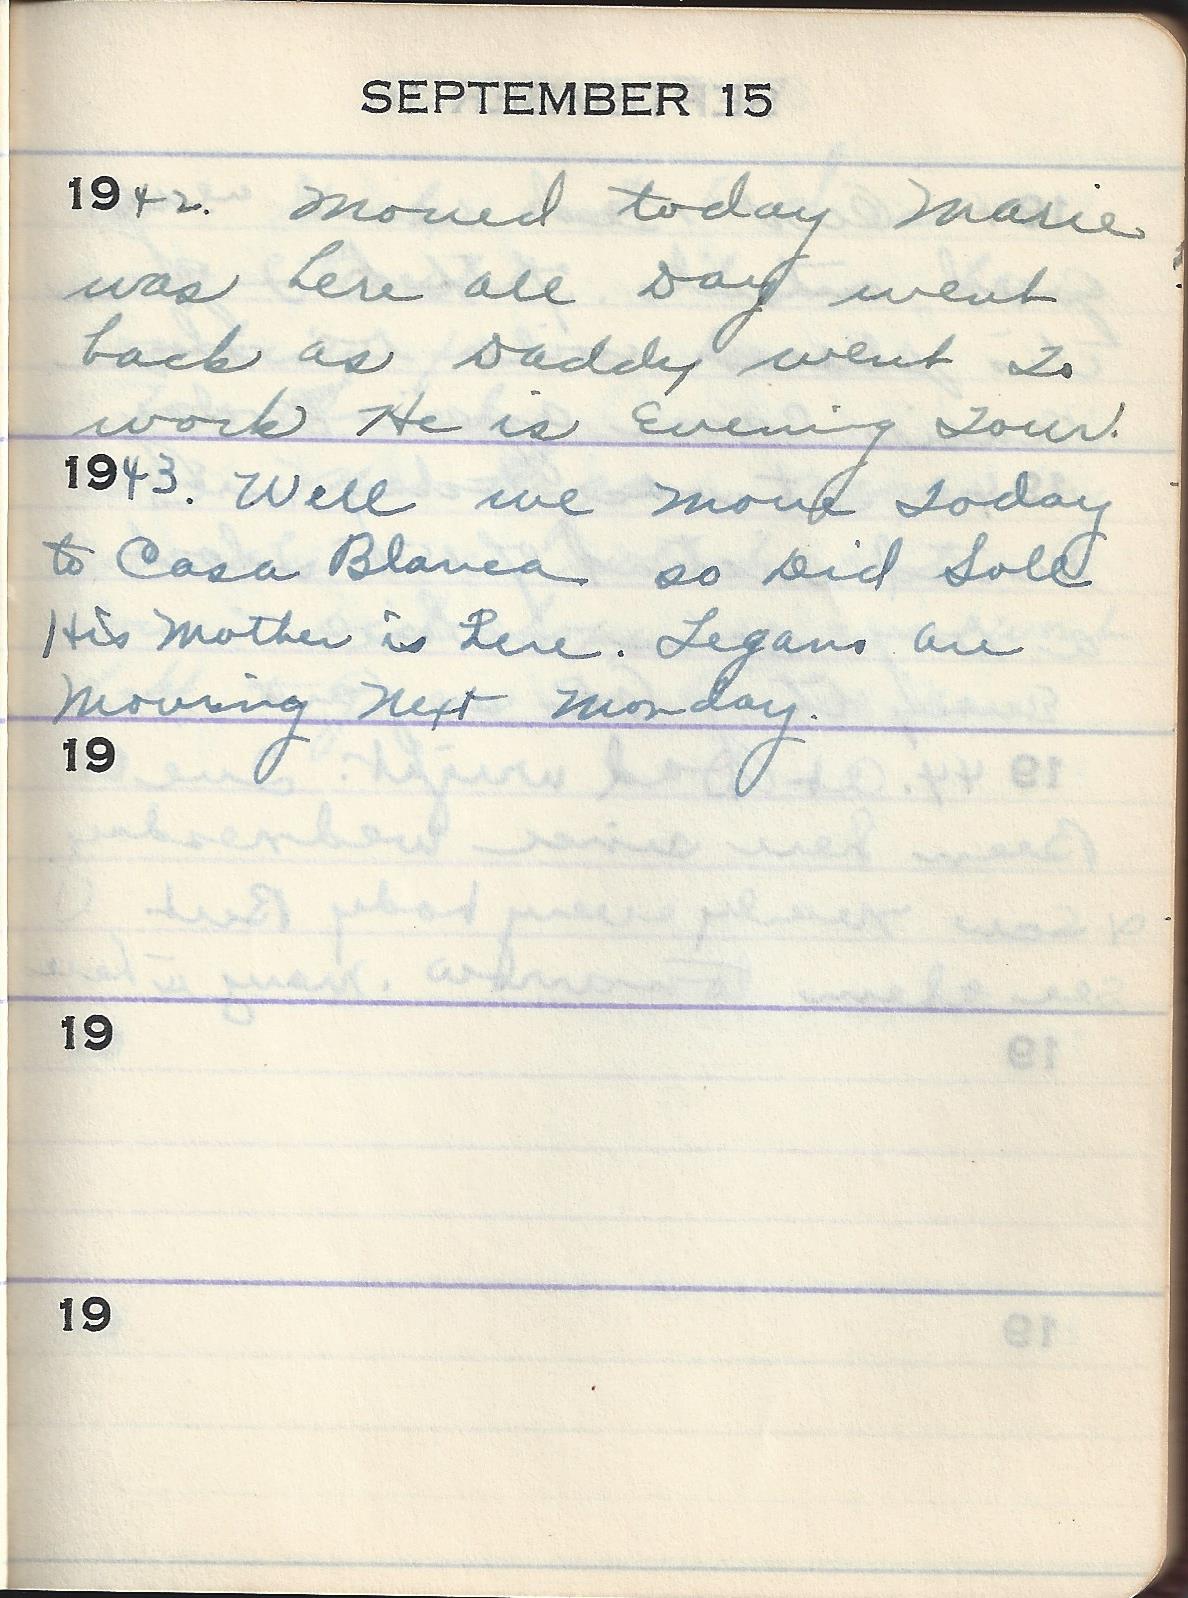 SEPTEMBER 15
1942. Moved today Marie
was here all Day went
back as Daddy went to
work He is Evening Tour.
1943. Well we move today
to Casa Blanca so Did Sole
His Mother is here. Legans are
Moving Next Monday.
19
19
19